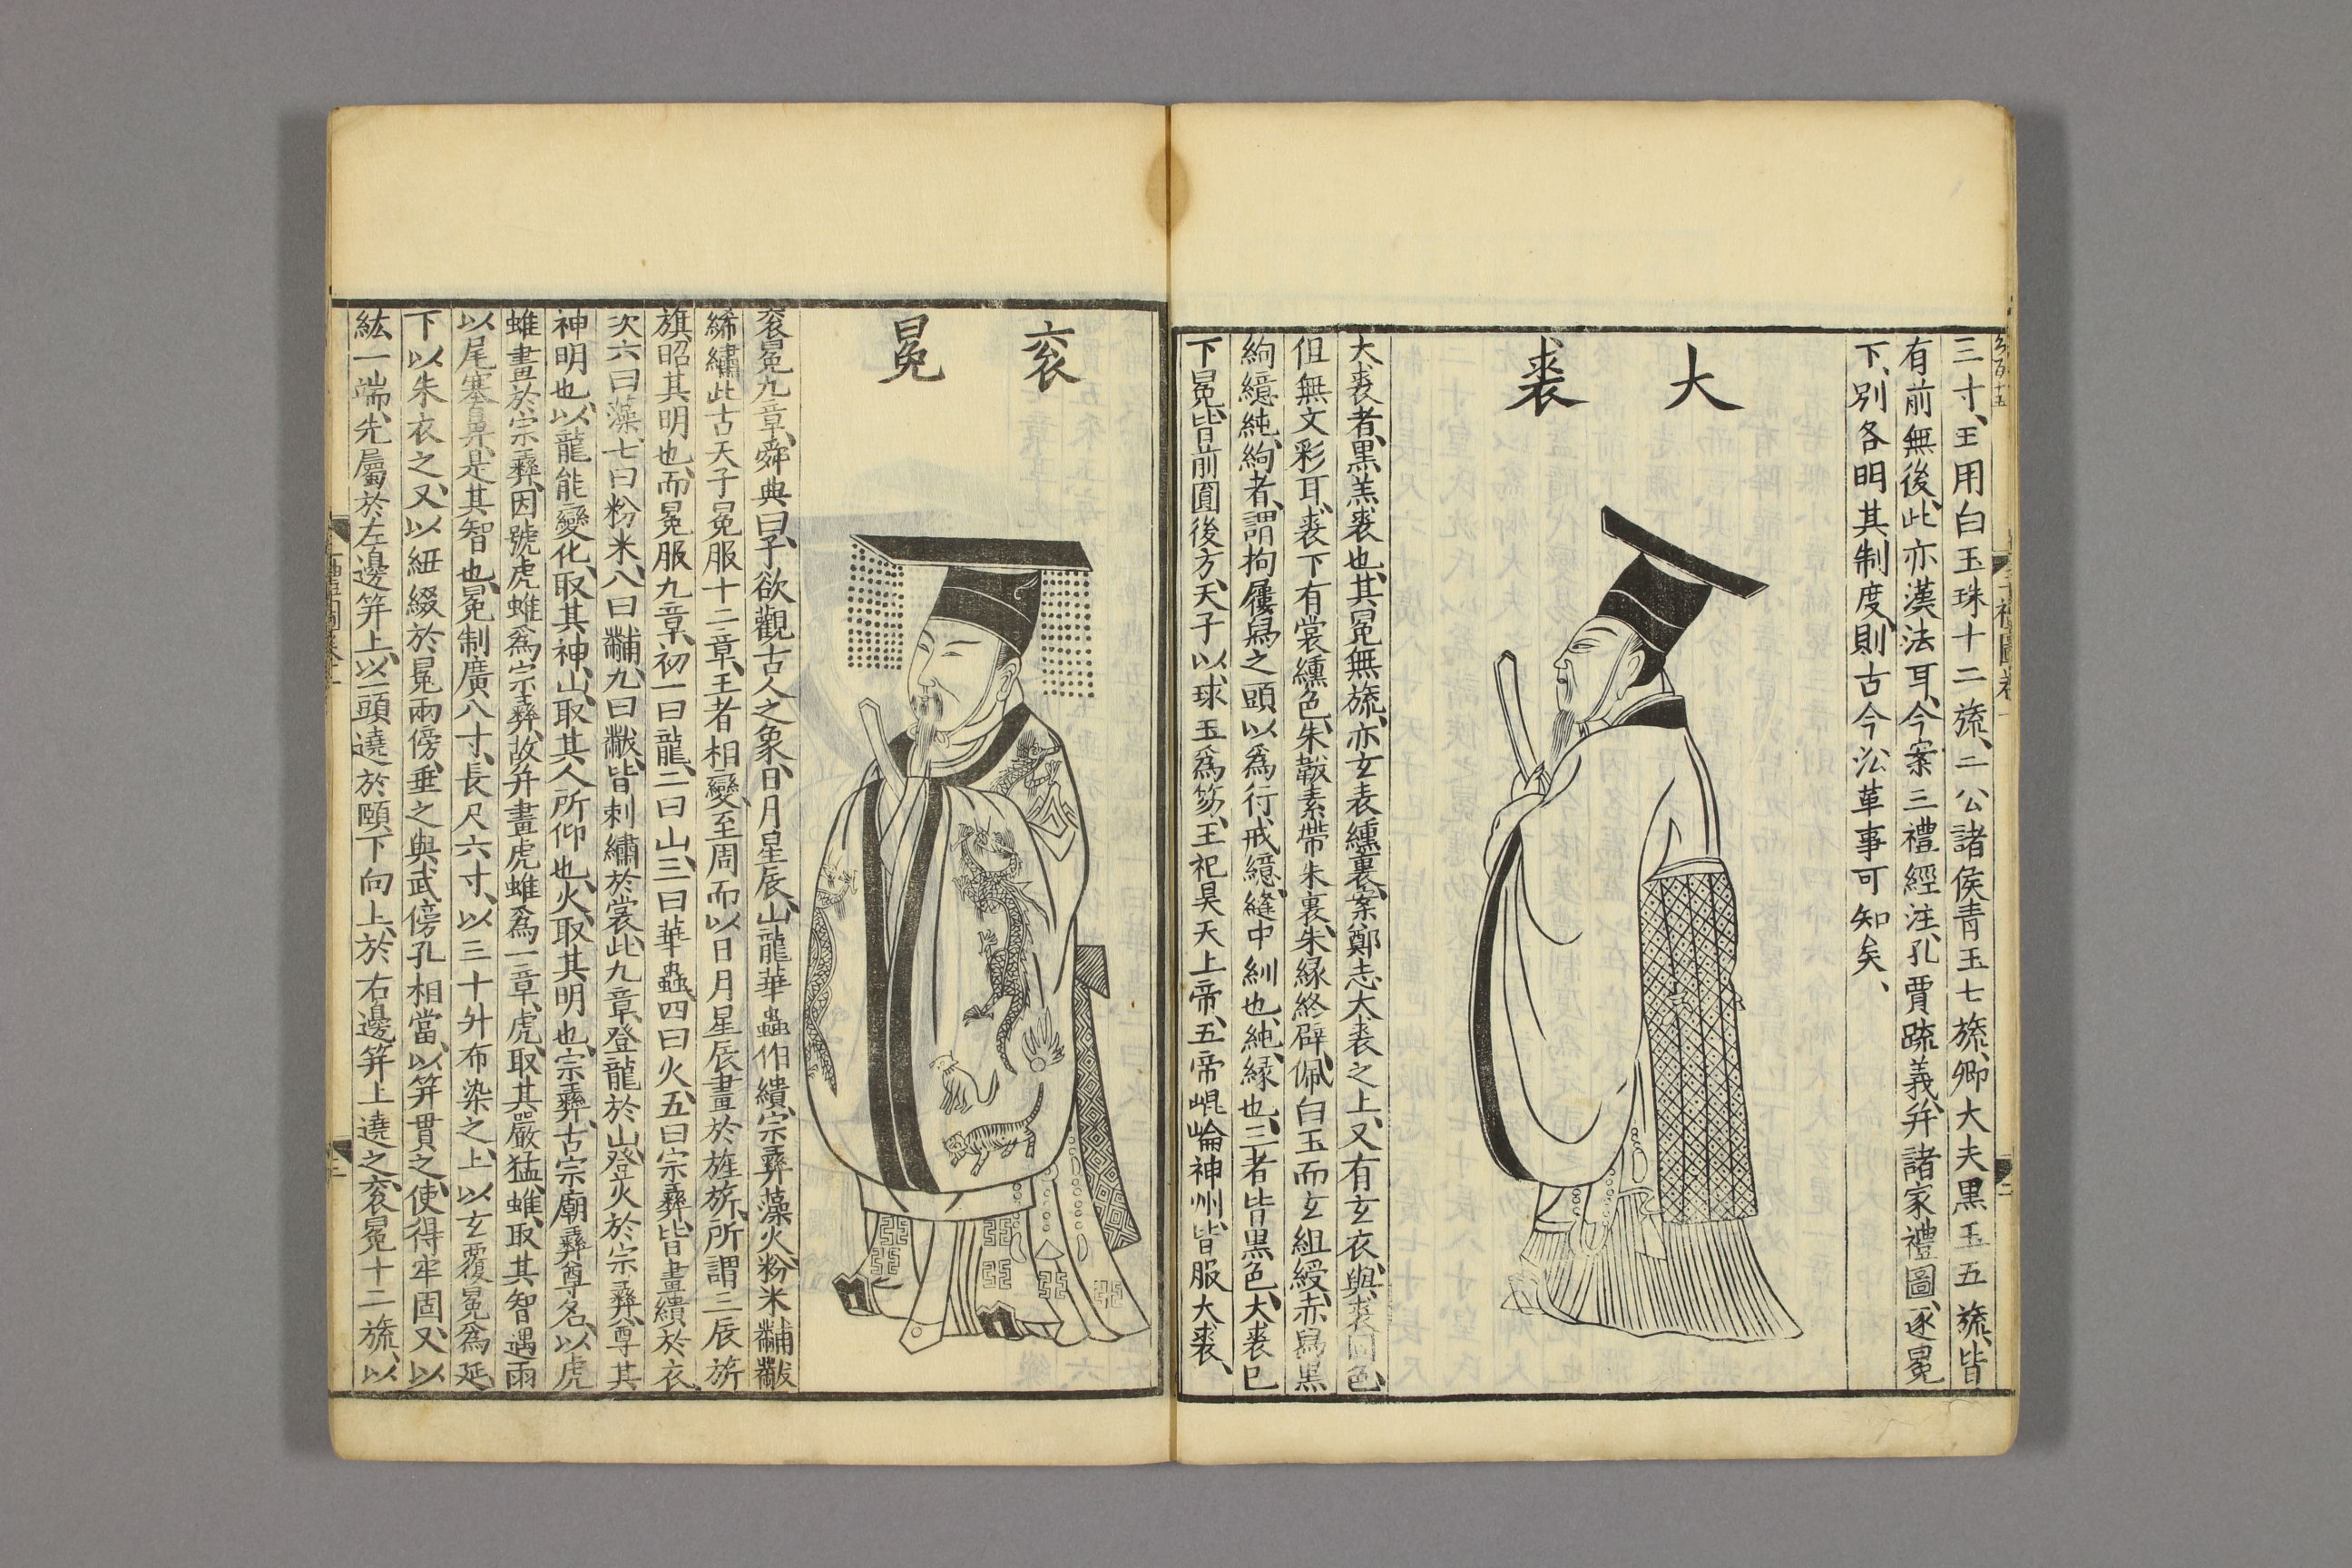 三寸、王用白玉珠十二旒、三公諸侯青玉七旒、卿大夫黒玉五旒、皆
有前無後、此亦漢法耳、今案三禮經注、孔賈疏義、并諸家禮圖、逐冕
下、別各明其制度、則古今沿革事可知矣、
大裘
大裘者、黒羔裘也、其冕無旒、亦玄表纁裏、案鄭志、大裘之上、又有玄衣、與裘同色、
但無文彩耳、裘下有裳纁色、朱韍素帶朱裏、朱緣終辟、佩白玉而玄組綬、赤舄黒
絇繶純、絇者、謂拘屨舄之頭以爲行戒、繶縫中紃也、純、緣也、三者皆黒色、大裘已
下冕、皆前圓後方、天子以球玉爲笏、王祀昊天上帝、五帝崐崘神州、皆服大裘、
衮冕
衮冕九章、舜典曰、予欲觀古人之象、日月星辰、山龍華蟲作繢、宗彝藻火粉米黼黻
絺繡此古天子冕服十二章、王者相變、至周而以日月星辰畫於旌旂、所謂三辰旂
旗、昭其明也、而冕服九章、初一曰龍、二曰山、三曰華蟲、四曰火、五曰宗彝、皆畫繢於衣
次六曰藻、七曰粉米、八曰黼、九曰黻、皆刺繡於裳、此九章、登龍於山、登火於宗彝、尊其
神明也、以龍能變化、取其神、山、取其人所仰也、火、取其明也、宗彝、古宗廟彝尊名、以虎
蜼畫於宗彝、因號虎蜼爲宗彝、故并畫虎蜼爲一章、虎、取其嚴猛、蜼、取其智、遇雨
以尾塞鼻、是其智也、冕制廣八寸、長尺六寸、以三十升布染之、上以玄覆冕爲延、
下以朱衣之、又以紐綴於冕兩傍、垂之與武傍孔相當、以笄貫之、使得牢固、又以
紘一端、先屬於左邊笄上、以一頭遶於頤、下向上、於右邊笄上遶之、衮冕十二旒、以